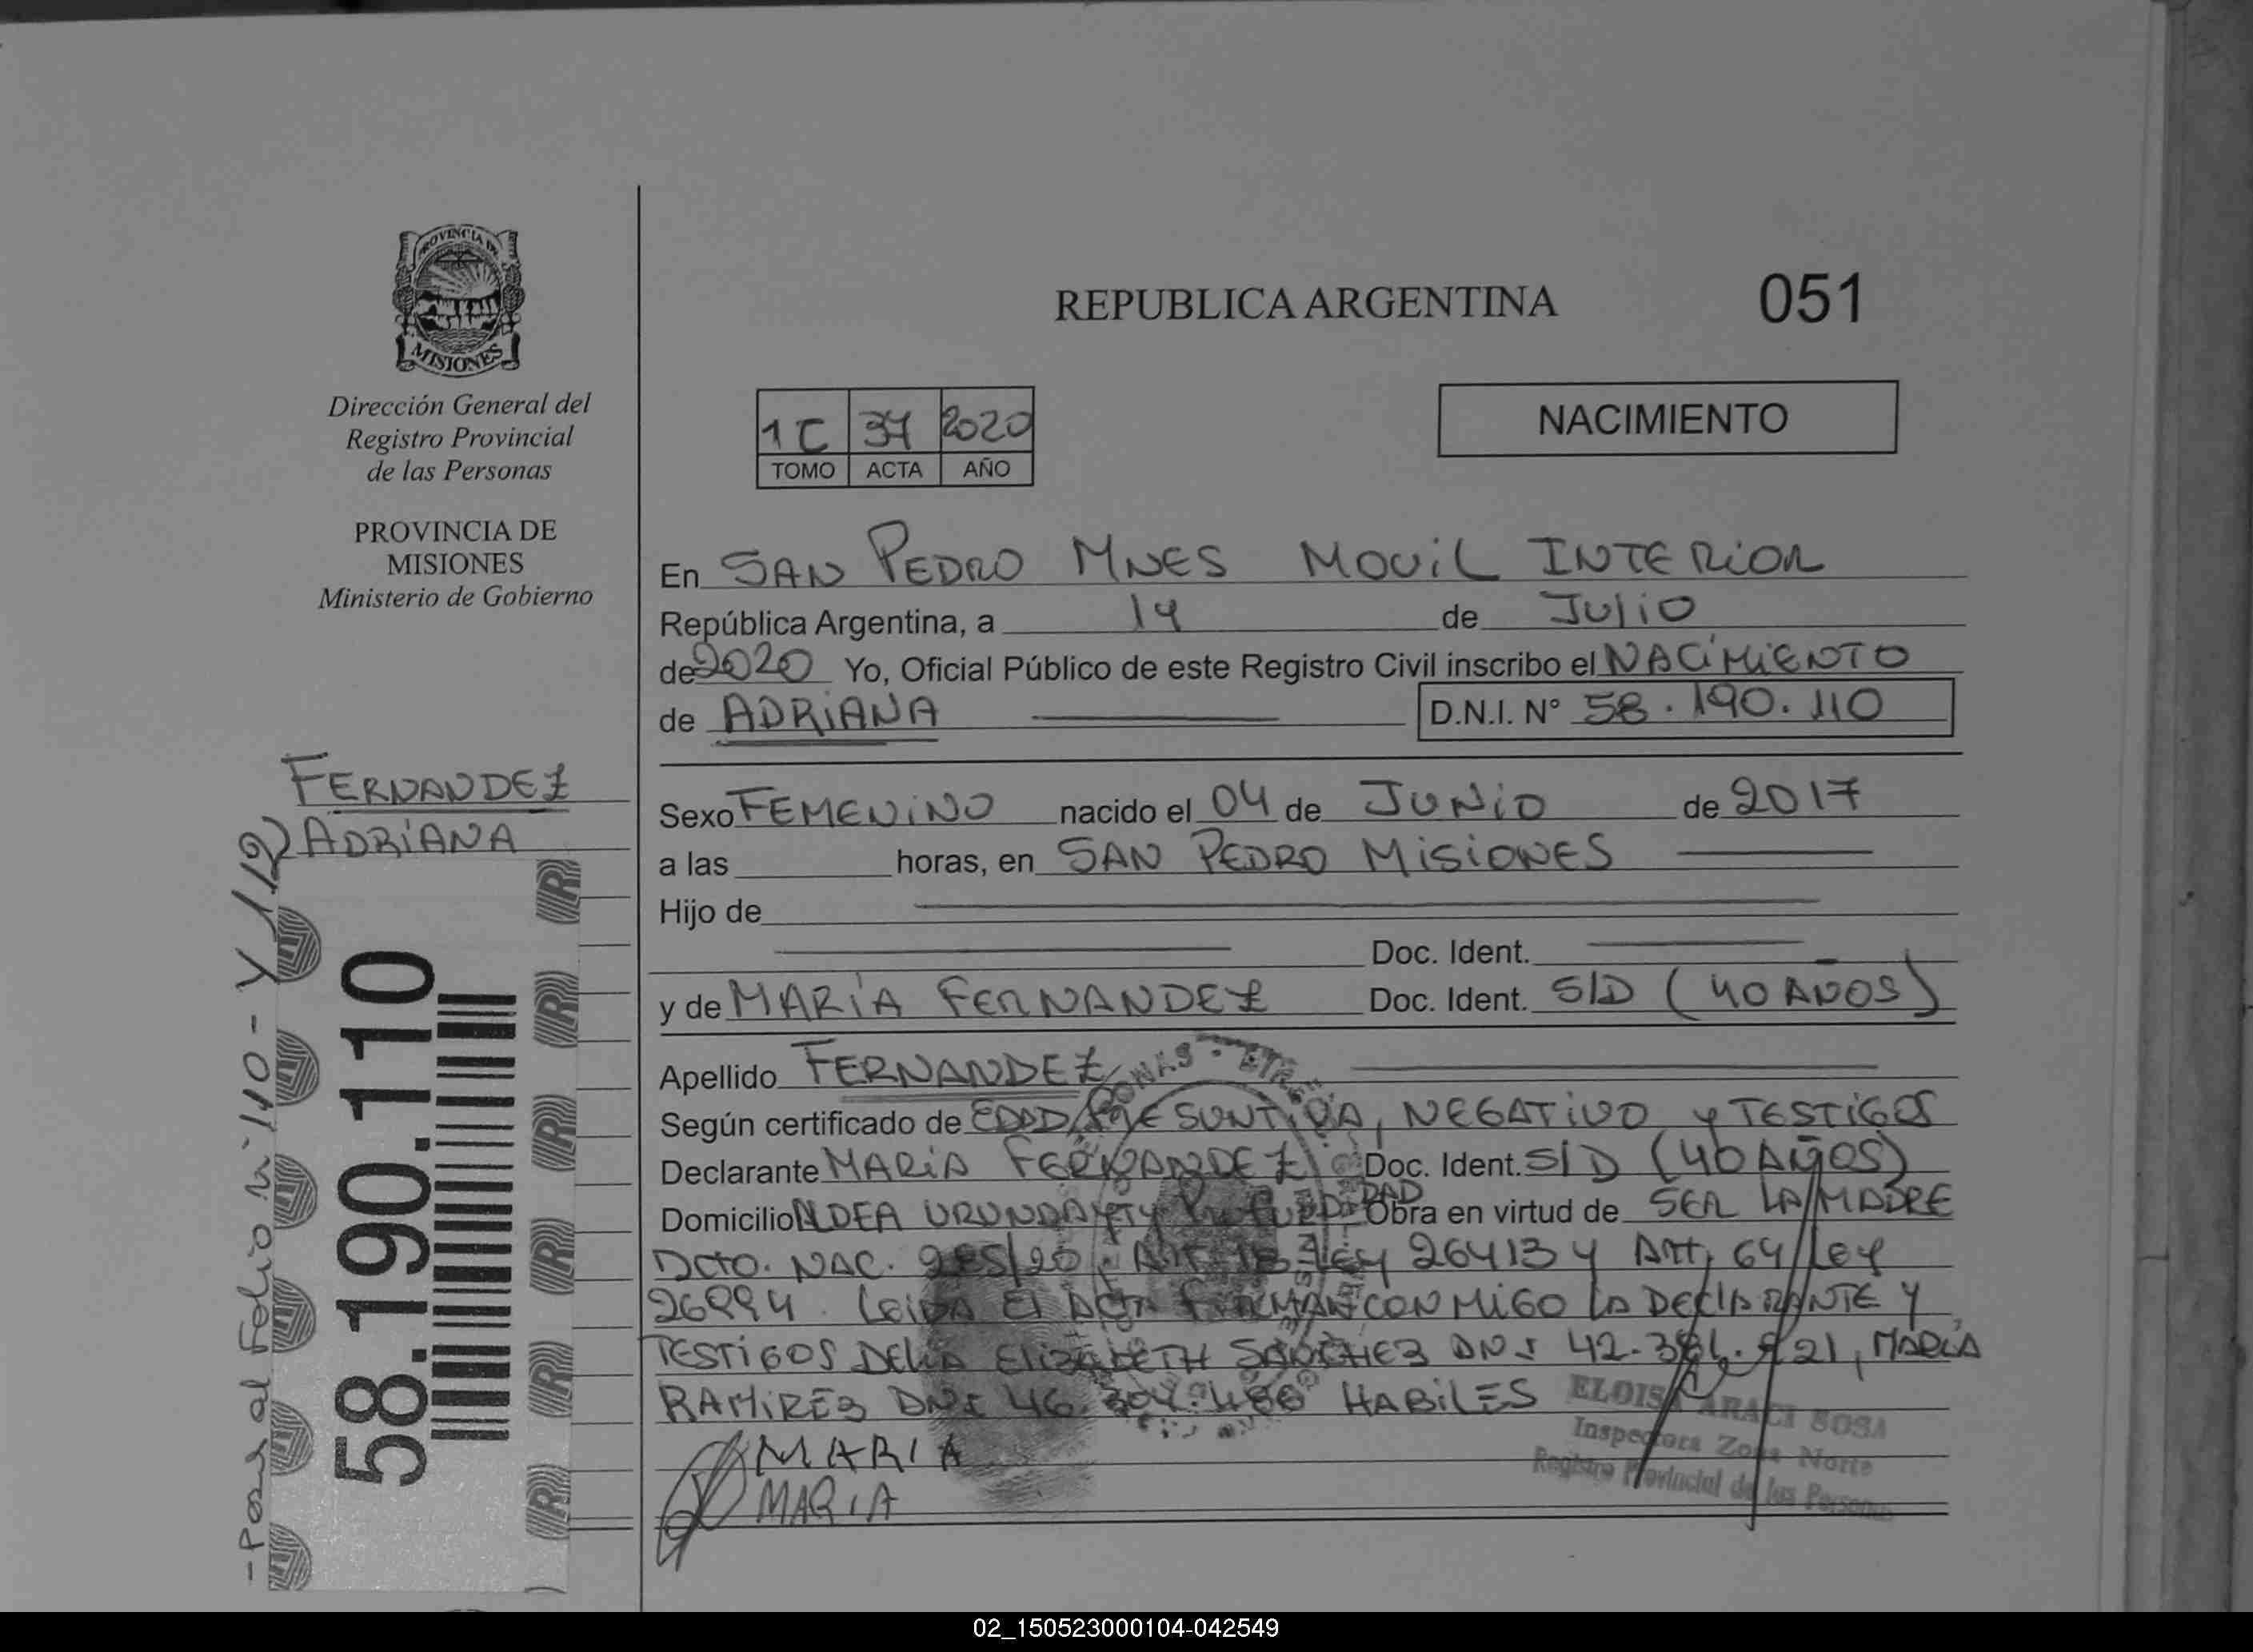 PROVINCIA DE
MISIONES
Dirección General del
Registro Provincial
de las Personas
PROVINCIA DE
MISIONES
Ministerio de Gobierno
FERNANDEZ
ADRIANA
58.190.110
REPUBLICA ARGENTINA 051
1C 37 2020
TOMO ACTA AÑO
NACIMIENTO
En SAN PEDRO MNES MOVIL INTERIOR
República Argentina, a 14 de JULIO
de 2020 Yo, Oficial Público de este Registro Civil inscribo el NACIMIENTO
de ADRIANA D.N.I. N° 58.190.110
Sexo FEMENINO nacido el 04 de JUNIO de 2017
a las horas, en SAN PEDRO MISIONES
Hijo de
Doc. Ident.
y de MARÍA FERNANDEZ Doc. Ident. S/D (40 AÑOS)
Apellido FERNANDEZ
Según certificado de EDAD PRESUNTIVA, NEGATIVO y TESTIGOS
Declarante MARÍA FERNANDEZ Doc. Ident. S/D (40 AÑOS)
Domicilio ALDEA Obra en virtud de SER LA MADRE
DCTO. NAC. LEY 26413 Y Art. 64 Ley
26994. Leida El Acta FIRMAN CONMIGO LA DECLARANTE Y
TESTIGOS DELIA ELIZABETH SANCHEZ DNI 42. 21, MARÍA
RAMIREZ DNI 46. HABILES
MARIA
MARIA
ELOISA ARACI SOSA
Inspectora Zona Norte
Registro Provincial de las Personas
- Pasa al Folio N: 110 - Y 112
02_150523000104-042549